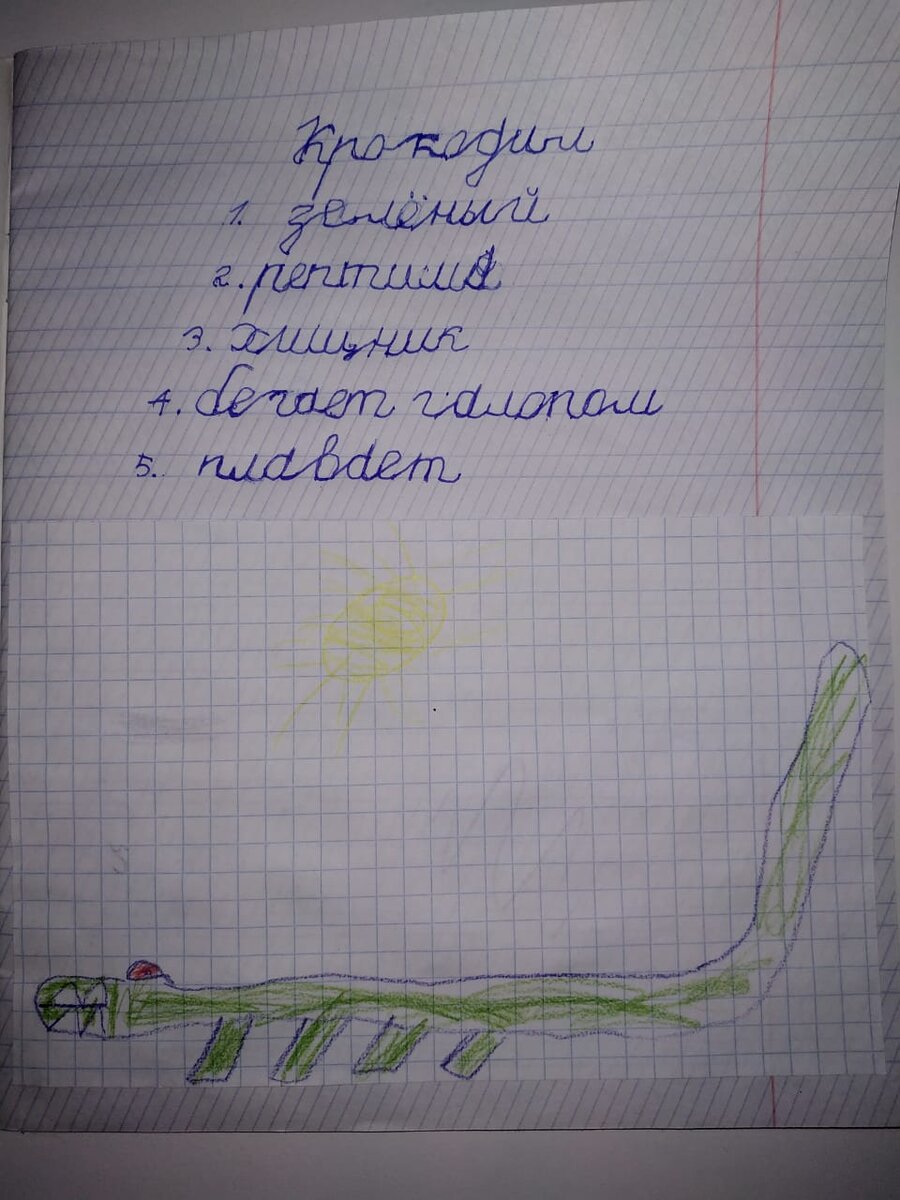 Крокодил
1. зелёный
2. рептилия
3. хищник
4. бегает галопом
5. плавает